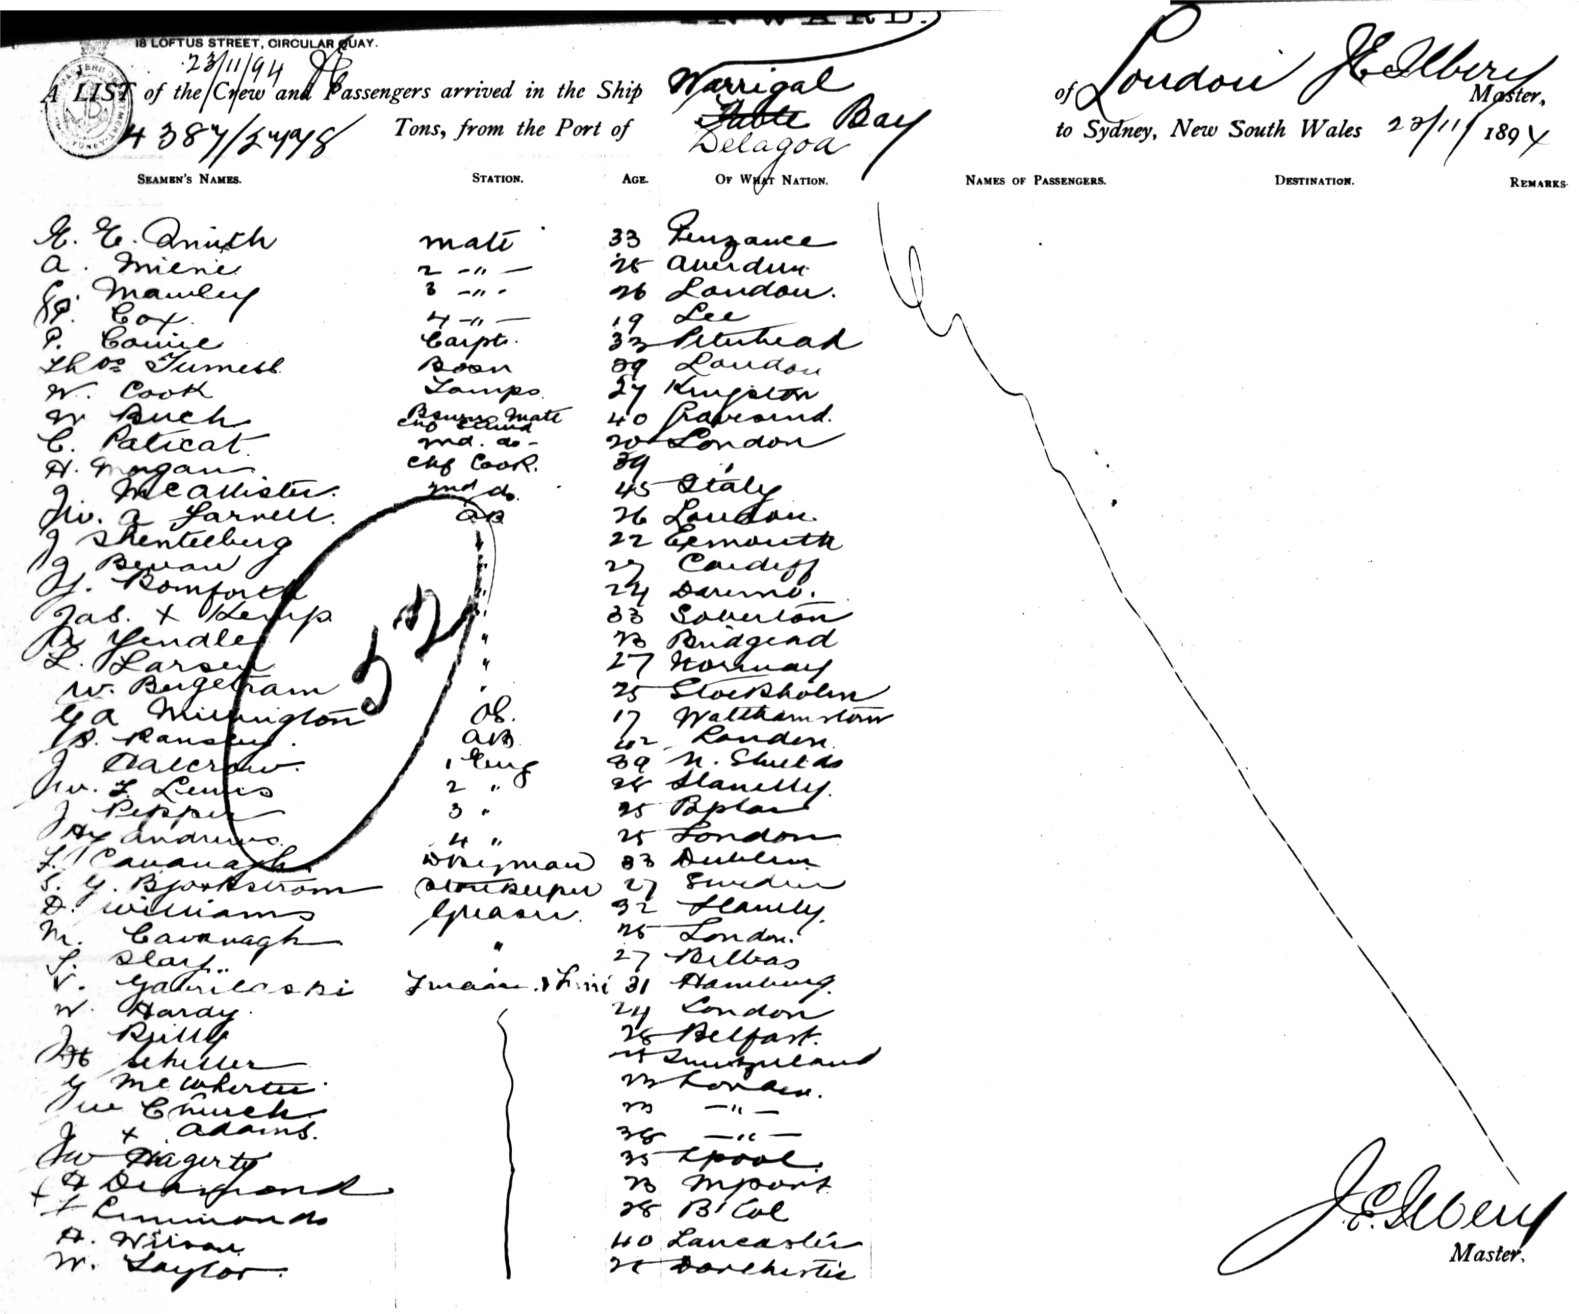 INWARD.
18 LOFTUS STREET, CIRCULAR QUAY.
23/11/94
A LIST of the Crew and Passengers arrived in the Ship Warrigal of London J E Ilbery Master,
Tons, from the Port of Table Bay to Sydney, New South Wales 23/11/ 1894
Delagoa
SEAMEN'S NAMES. STATION. AGE. OF WHAT NATION. NAMES OF PASSENGERS. DESTINATION. REMARKS.
E. E. Smith mate 33 Penzance
A. Milne 2 -"- 25 Aberdeen
Mawley 3 -"- 26 London.
Cox. 4 -"- 19 Lee
P. Cowie Carpt. 33 Peterhead
Thos Tunnell Bosn 39 London
W. Cook Lamps. 27 Kingston
W Buch Bosuns Mate 40 Gravesend.
C. Paticat 2nd. do - 20 London
H. Morgan Chf Cook. 39
J. McAllister. 2nd do. 45 Italy
Jw. A Farnell. AB 26 London.
J Shentleburg " 22 Exmouth
J Bevan " 27 Cardiff
Bomforth " 24
Jas. + Kemp " 33 Soberton
A Yendle " 23 Bridgend
L. Larsen " 27 Norway
W. Bergstram " 25 Stockholm
G A Millington OS. 17 Walthamstow
Ransey. AB 42 London.
J Halcrow. 1 Eng 39 N. Shields
Jw. L Lewis 2 " 28 Llanelly.
J Pepper 3 " 25 Poplar
Hy Andrews. 4 " 25 London
Cavanagh Donkeyman 33 Dublin
S. G. Bjorkstrom Storekeeper 27 Sweden
D. Williams Greaser. 32 Llanelly.
M. Cavanagh " 25 London.
27 Bilbao
Gabrileski Fireman & Trim 31 Hamburg.
W. Hardy. 24 London
J Reilly 28 Belfast.
H Schiller 25 Switzerland
G McWherter 23 London.
Jw Church. 23 -"-
J + Adams. 38 -"-
Jw Hagerty 35 Lpool.
+ H Desmond 23 Mport
Simmonds 28 B' Col
A. Wilson 40 Lancaster
W. Taylor. 25 Dorchester
52
J. E. Ilbery
Master.